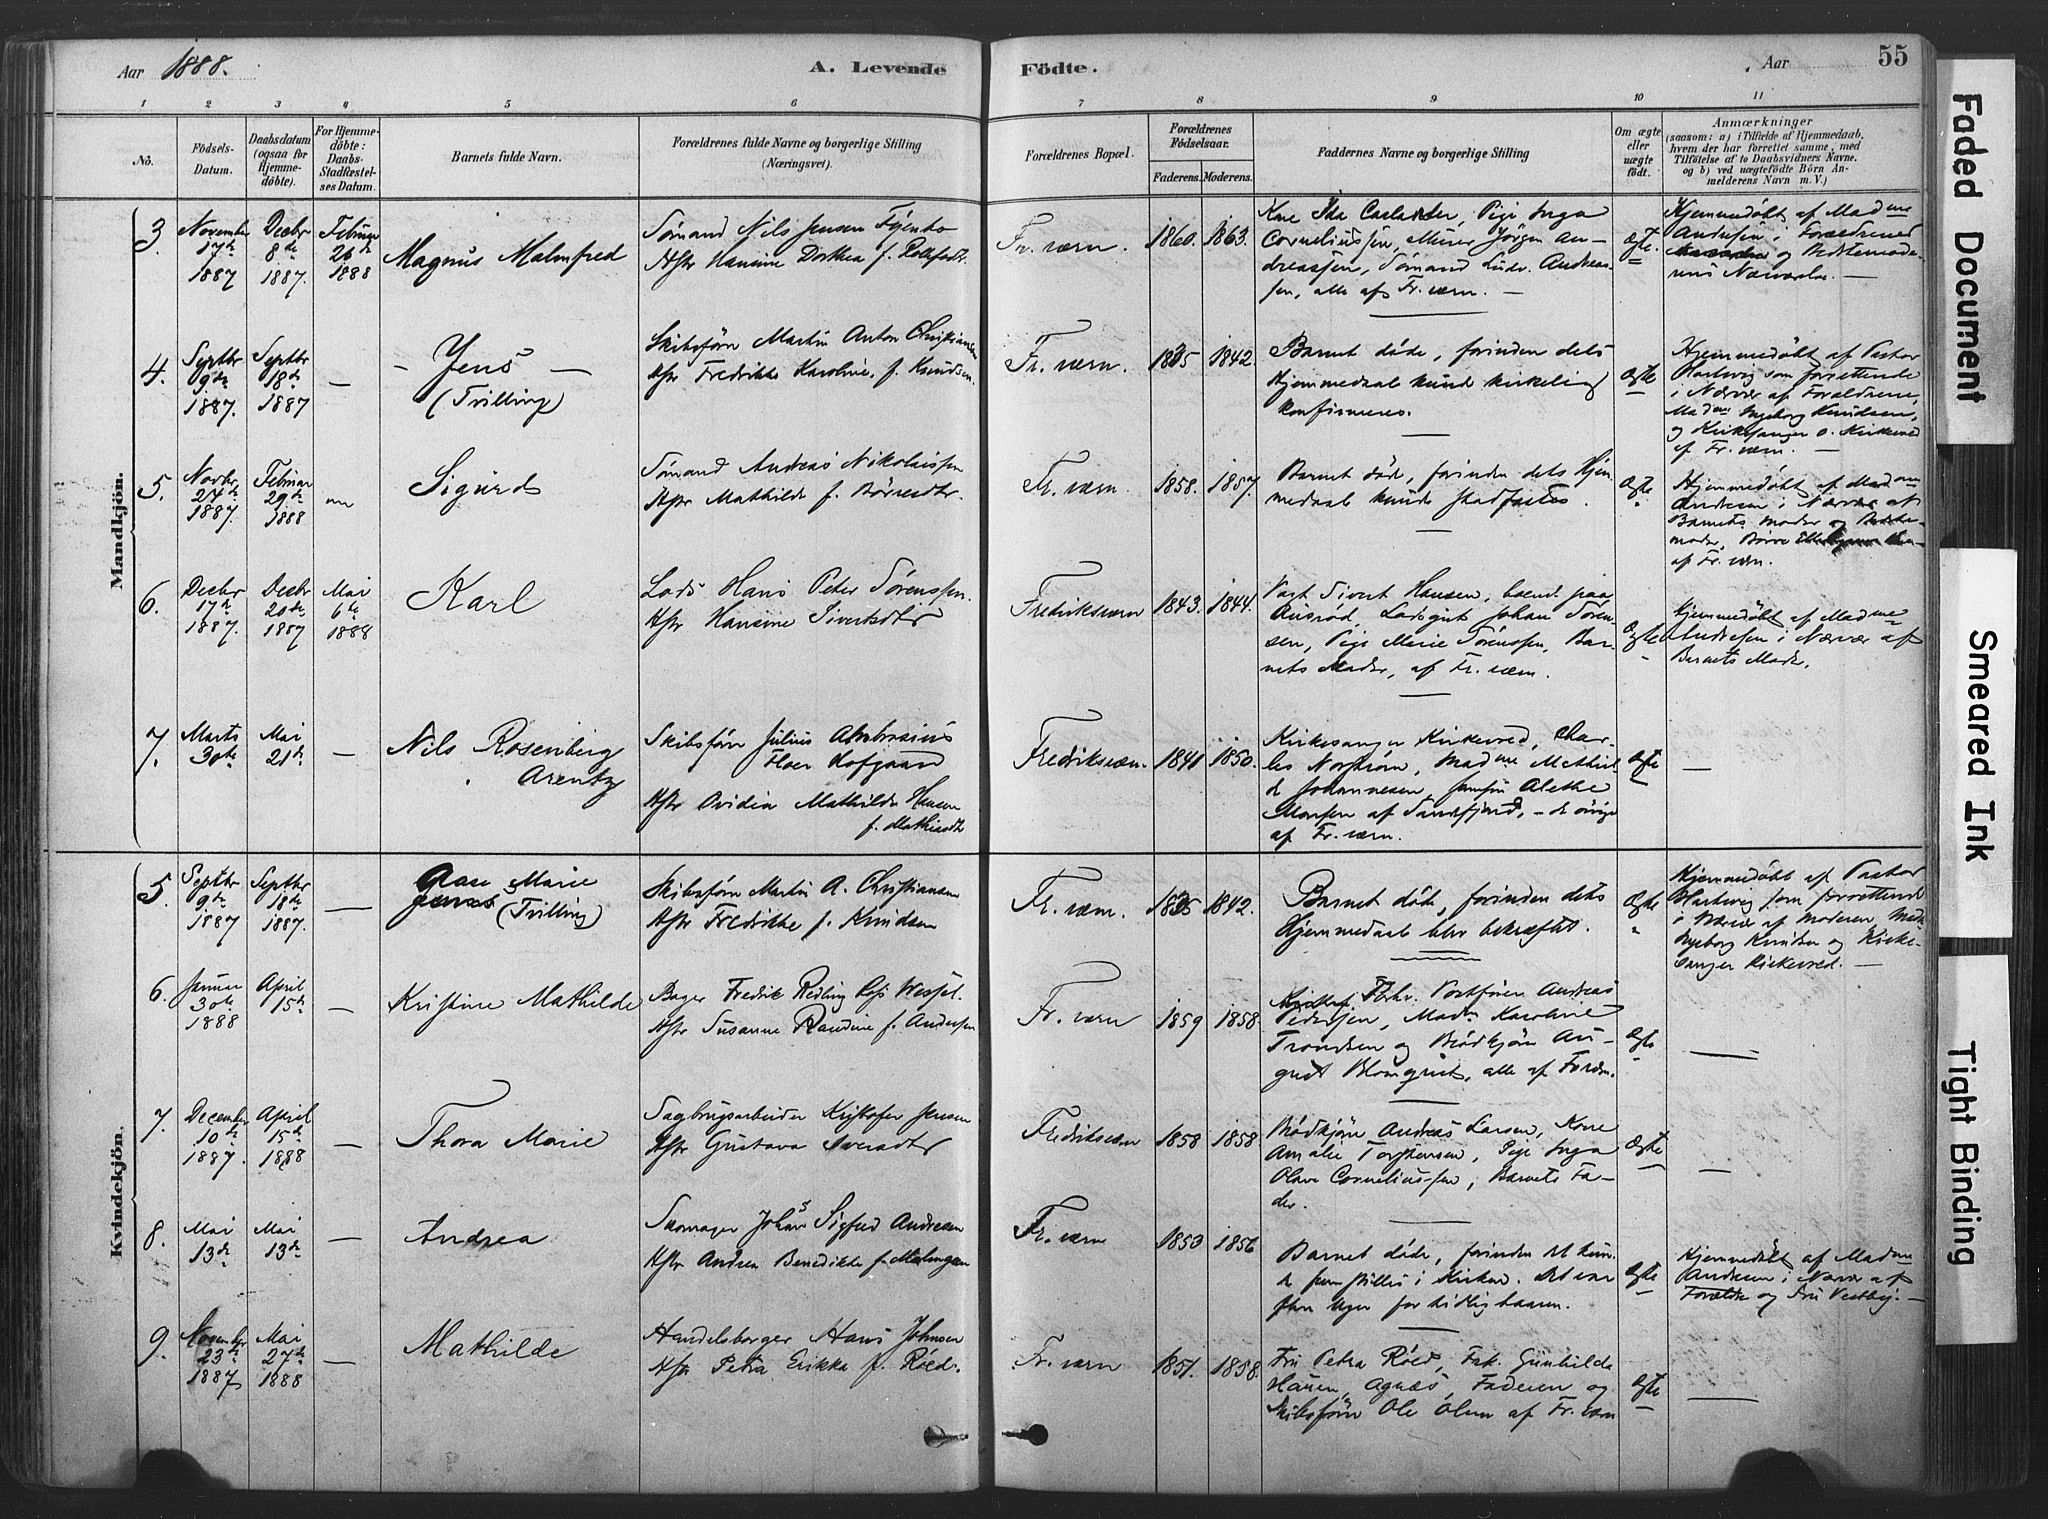 Aar 1888.
A. Levende
Födte.
Aar
55
1 2 3 4 5 6 7 8 9 10 11
No.
Födsels-
Datum.
Daabsdatum
(ogsaa for
Hjemme-
döbte).
For Hjemme-
döbte:
Daabs-
Stadfæstel-
ses Datum.
Barnets fulde Navn.
Forældrenes fulde Navne og borgerlige Stilling
(Næringsvei).
Forældrenes Bopæl.
Forældrenes
Födselsaar.
Faderens. Moderens.
Faddernes Navne og borgerlige Stilling
Om ægte
eller
uægte
födt.
Anmærkninger
(saasom: a) i Tilfælde af Hjemmedaab,
hvem der har forrettet samme, med
Tilföielse af to Daabsvidners Navne.
og b) ved uægtefödte Börn An-
melderens Navn m. V.)
Mandkjön.
3
November
17de
1887
Decbr
8de
1887.
Februar
26de
1888
Magnus Malmfred
Sømand Nils Jensen
Hstr Hansine Dorthea f.
Fr. værn.
1860. 1863.
Kone Ida Pige Inga
Corneliussen, Murer Jörgen An-
dreassen, Sømand Ludv. Andreas-
sen, alle af Fr. værn. —
Ægte.
Hjemmedøbt af Madme
Andresen i Forældrenes
og Bedstemode-
rens Nærværelse. —
4.
Septbr
9de
1887.
Septbr
18de
1887
—
— Jens —
(Tvilling)
Skibsförer Martin Anton Christiansen
Hstr Fredrikke Karoline, f. Knudsen.
Fr. værn.
1835 1842.
Barnet døde, forinden dets
Hjemmedaab kunde kirkelig
konfirmeres.
Ægte
Hjemmedøbt af Pastor
Hartwig som forrettende
i Nærvær af Forældrene,
Madme Ingeborg Knudsen,
og Kirkesanger O. Kirkevred
af Fr. værn. —
5.
Novbr.
24de
1887.
Februar
29de
1888
Sigurd
Sømand Andreas Nikolaissen
Hstr Mathilde f. Börresdtr.
Fr. værn.
1858. 1857.
Barnet døde, forinden dets Hjem-
medaab kunde stadfæstes.
Ægte
Hjemmedøbt af Madme
Andresen i Nærvær af
Barnets Moder og Bedste-
moder, Børre
af Fr. værn.
6.
Decbr
17de
1887.
Decbr
20de
1887
Mai
6te
1888
Karl
Lods Hans Peter Sørenssen.
Hstr Hansine Sivertsdtr
Fredriksværn
1843. 1844.
Vagt Sivert Hansen, boend. paa
Ausröd, Lodsgut Johan Søren-
sen, Pige Marie Sørenssen, Bar-
nets Moder, af Fr. værn.
Ægte
Hjemmedøbt af Madme
Andresen i Nærvær af
Barnets Moder.
7.
Marts
30te
Mai
21de
—
Nils Rosenberg
Arentz
Skibsförer Julius Ambrosius
Floer Hofgaard
Hstr Ovidia Mathilde Hansen
f. Mathiesdtr
Fredriksværn.
1841 1850.
Kirkesanger Kirkevred, Char-
les Norström, Madme Mathil-
de Johannesen, Jomfru Alethe
Monsen af Sandefjord, — de øvrige
af Fr. værn.
Ægte
—
Kvindekjön.
5
Septbr
9de
1887
Septbr
18de
1887.
—
Aase Marie
(Tvilling)
Skibsförer Martin A. Christiansen
Hstr Fredrikke f. Knudsen
Fr. værn.
1835 1842.
Barnet døde, forinden dets
Hjemmedaab blev bekræftet.
Ægte
Hjemmedøbt af Pastor
Hartwig som forrettende
i Nærvær af Moderen, Madm
Ingeborg Knudsen og Kirke-
sanger Kirkevred. —
6.
Januar
30te
1888
April
15de
—
Kristine Mathilde
Bager Fredrik Redling Wessel.
Hstr Susanne Randine f. Andersen
Fr. værn
1859 1858
Forhv. Postfører Andreas
Pedersen, Madm Karoline
Trondsen og Bödkjörer Au-
gust Blomquist, alle af Fordn.
Ægte
—
7.
December
10de
1887.
April
15de
1888
—
Thora Marie
Sagbrugsarbeider Kristofer Jensen
Hstr Gustava Iversdtr
Fredriksværn
1858 1858
Bödkjörer Andreas Larsen, Kone
Amalie Torstensen, Pige Inga
Olava Corneliussen, Barnets Fa-
der.
Ægte
—
8.
Mai
13de
Mai
13de
—
Andrea
Skomager Johans Sigfred Andresen
Hstr Andrea Benedikte f. Malmgren
Fr. værn
1853 1856
Barnet døde, forinden det kun-
de fremstilles i Kirken. Det var
flere Uger for tidlig baaren.
Ægte
Hjemmedøbt af Madme
Andresen i Nærvær af
Forældre og Fru Vestby. —
9.
November
23de
1887
Mai
27de
1888
—
Mathilde
Handelsborger Hans Johnsen
Hstr Petra Erikka f. Röed.
Fr. værn
1851. 1858.
Fru Petra Röed, Frk. Gunhilde
Hansen, Agnes, Faderen og
Skibsförer Ole Olsen af Fr. værn
Ægte
—
Faded Document
Smeared Ink
Tight Binding